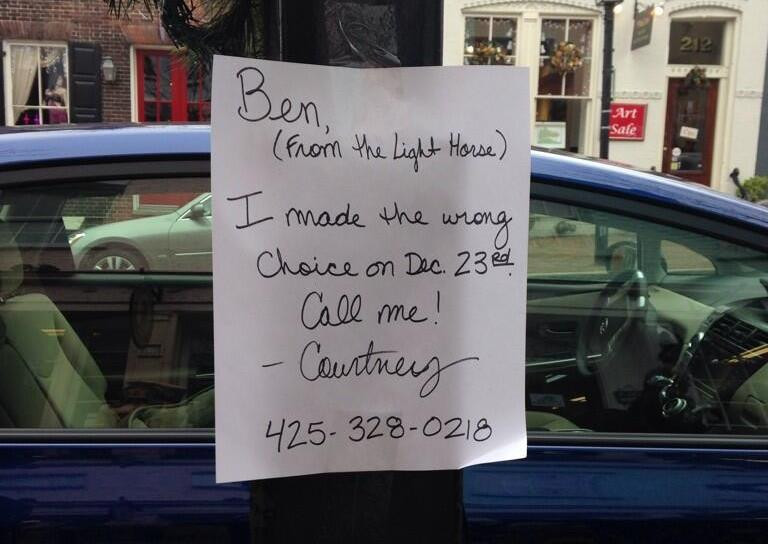 Ben,
(From the Light Horse)
I made the wrong
Choice on Dec. 23rd.
Call me!
- Courtney
425-328-0218
212
Art
Sale